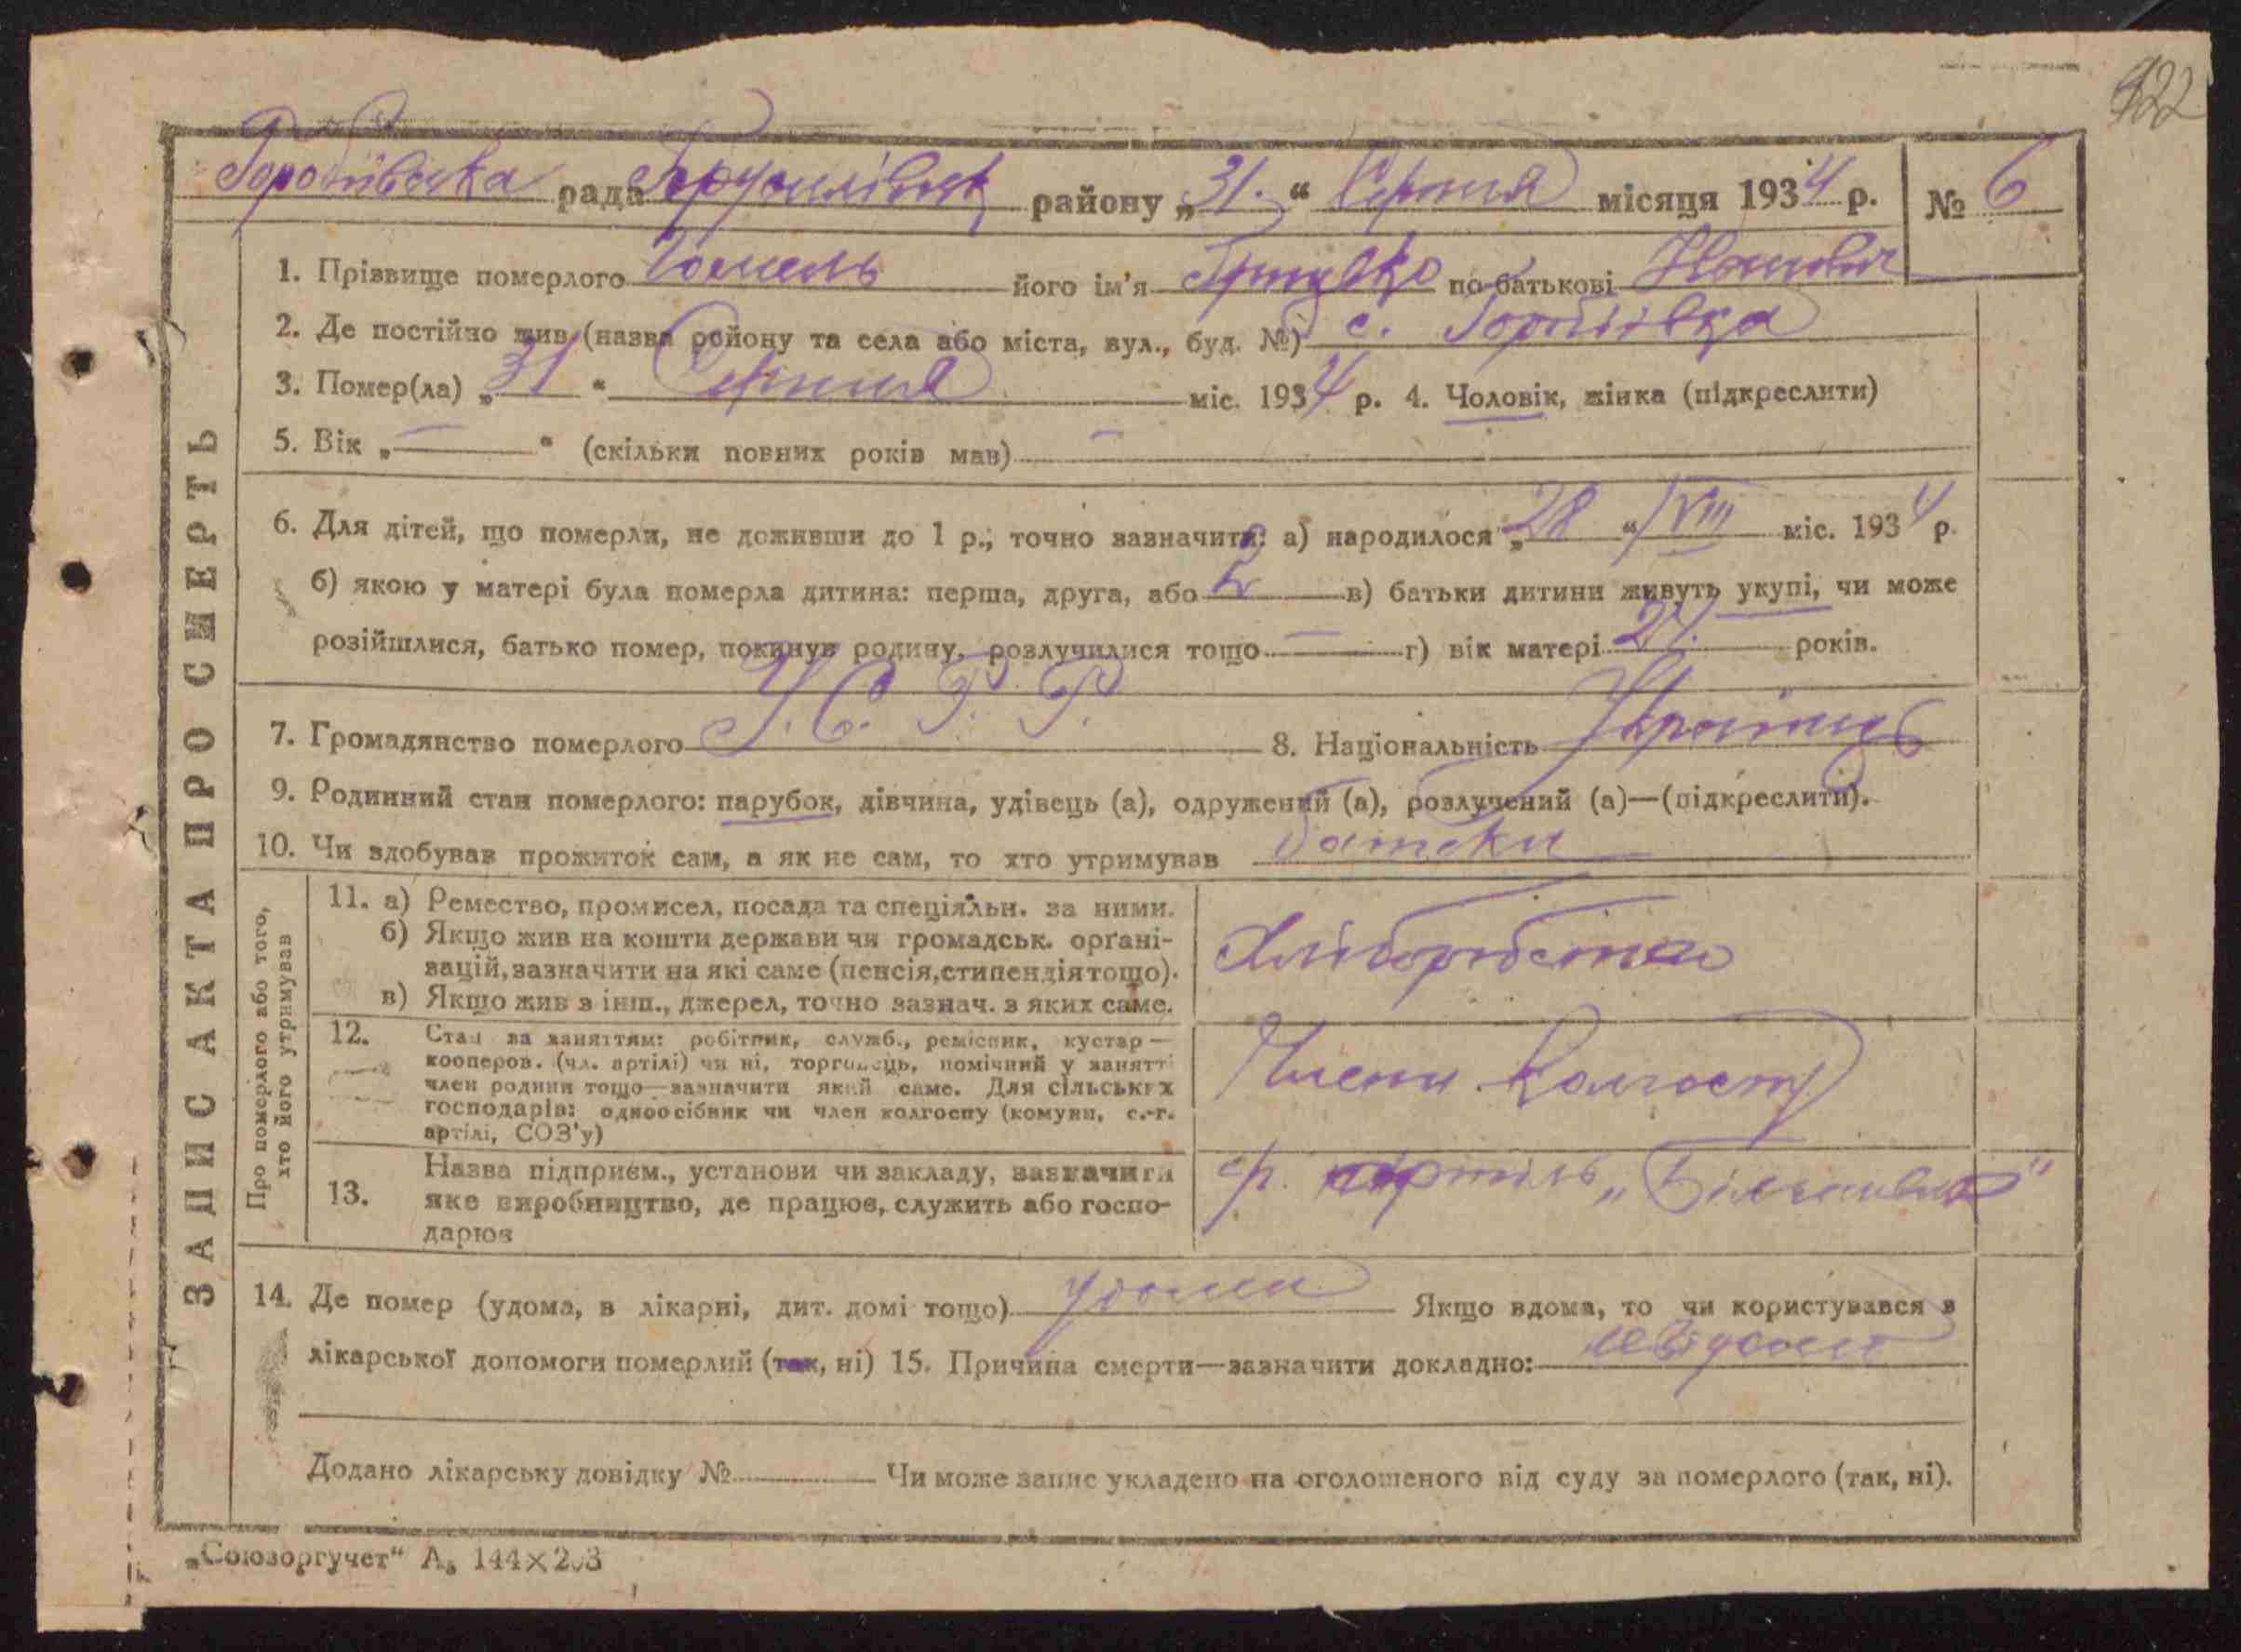 422
Горобіївська рада Брусилівськ району „31.“ Серпня місяця 1934 р. № 6
1. Прізвище померлого його ім'я по батькові Іванович
2. Де постійно жив (назва району та села або міста, вул., буд. №) с. Горобіївка
3. Помер(ла) „31“ Серпня міс. 1934 р. 4. Чоловік, жінка (підкреслити)
5. Вік „—“ (скільки повних років мав) —
6. Для дітей, що померли, не доживши до 1 р., точно зазначити: а) народилося „28“ VIII міс. 1934 р.
б) якою у матері була померла дитина: перша, друга, або 2 в) батьки дитини живуть укупі, чи може
розійшлися, батько помер, покинув родину, розлучилися тощо — г) вік матері 27. років.
7. Громадянство померлого У. С. Р. Р. 8. Національність Українець
9. Родинний стан померлого: парубок, дівчина, удівець (а), одружений (а), розлучений (а)—(підкреслити).
10. Чи здобував прожиток сам, а як не сам, то хто утримував батьки
ЗАПИС АКТА ПРО СМЕРТЬ
Про померлого або того, хто його утримував
11. а) Ремество, промисел, посада та спеціяльн. за ними.
б) Якщо жив на кошти держави чи громадськ. орґані-
зацій, зазначити на які саме (пенсія, стипендія тощо).
в) Якщо жив з інш., джерел, точно зазнач. з яких саме.
Хліборобство
12. Стан за заняттям: робітник, служб., ремісник, кустар —
кооперов. (чл. артілі) чи ні, торговець, помічний у занятті
член родини тощо—зазначити який саме. Для сільських
господарів: одноосібник чи член колгоспу (комуни, с.-г.
артілі, СОЗ'у)
Члени колгоспу
13. Назва підприєм., установи чи закладу, зазначити
яке виробництво, де працює, служить або госпо-
дарює
с/г. артіль „Більшовик“
14. Де помер (удома, в лікарні, дит. домі тощо) удома Якщо вдома, то чи користувався з
лікарської допомоги померлий (так, ні) 15. Причина смерти—зазначити докладно: невідомо
Додано лікарську довідку № Чи може запис укладено на оголошеного від суду за померлого (так, ні).
„Союзоргучет“ А₅ 144×203